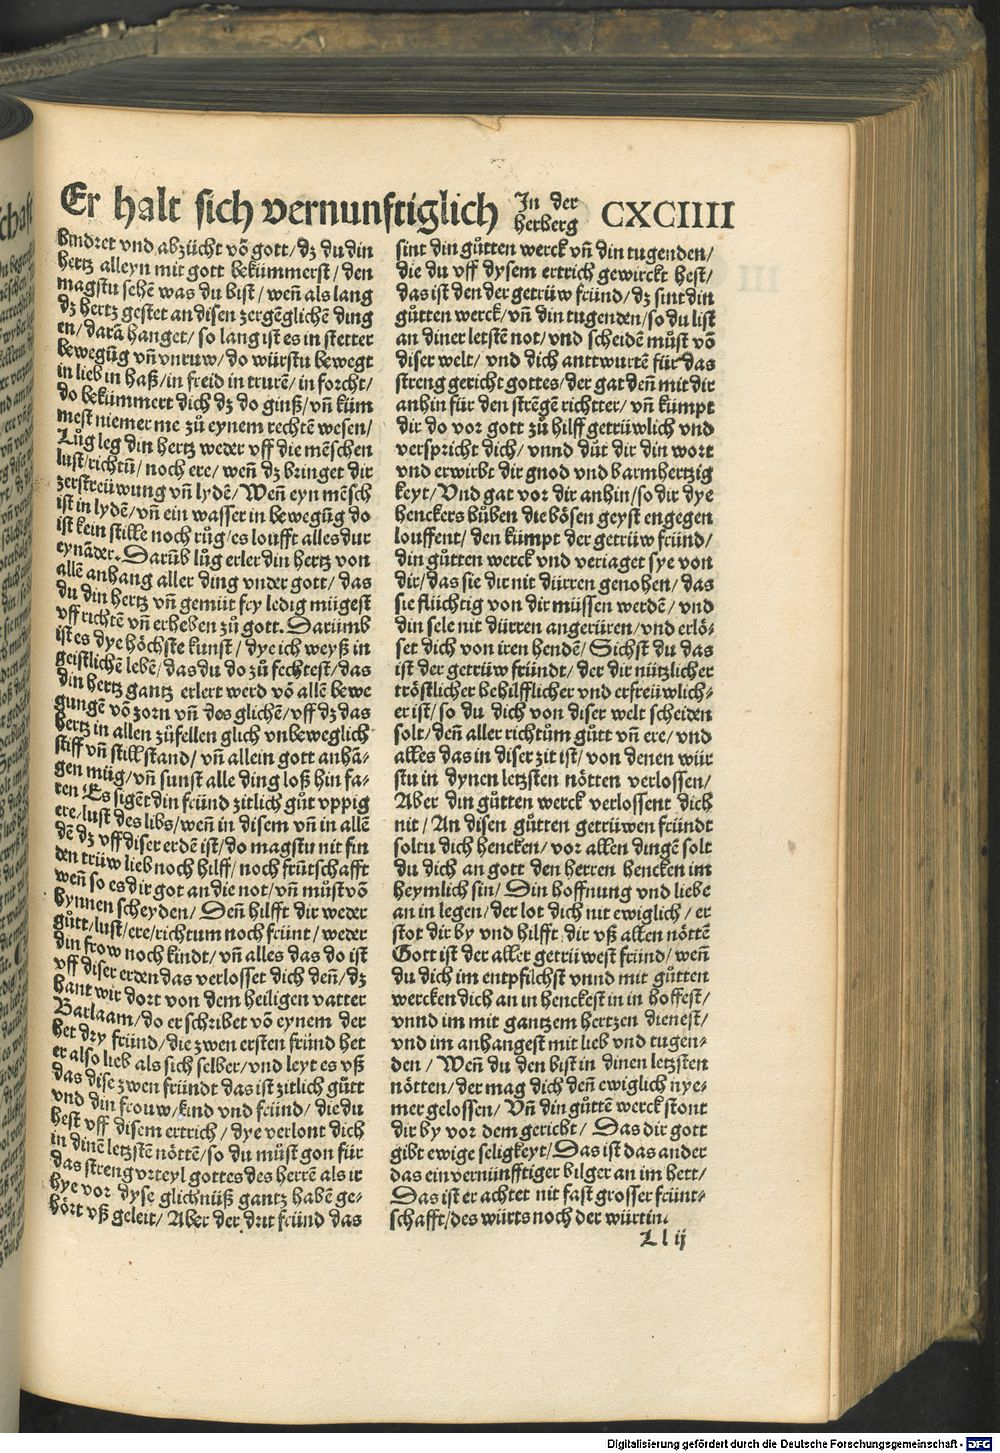 Er halt sich vernunftiglich In der herberg CXCIIII
hindret vnd abzücht võ gott/ dz du din
hertz alleyn mit gott bekümmerst/ den
magstu sehẽ was du bist/ weñ als lang
dz hertz gestet an disen zergẽglichẽ ding
en/ darã hanget/ so lang ist es in stetter
bewegũg vñ vnruw/ do würstu bewegt
in lieb in haß/ in freid in trurẽ/ in forcht/
do bekümmert dich dz do ginß/ vñ küm
mest niemer me zů eynem rechtẽ wesen/
Lůg leg din hertz weder vff die mẽschen
lust/ richtũ/ noch ere/ weñ dz bringet dir
zerstreüwung vñ lydẽ/ Weñ eyn mẽsch
ist in lydẽ/ vñ ein wasser in bewegũg do
ist kein stille noch růg/ es loufft alles dur
eynãder. Darũb lůg erler din hertz von
allẽ anhang aller ding vnder gott/ das
du din hertz vñ gemüt fry ledig mügest
vff richtẽ vñ erheben zů gott. Darumb
ist es dye höchste kunst/ dye ich weyß in
geistlichẽ lebẽ/ das du do zů fechtest/ das
din hertz gantz erlert werd võ allẽ bewe
gungẽ võ zorn vñ des glichẽ/ vff dz das
hertz in allen zůfellen glich vnbeweglich
stiff vñ still stand/ vñ allein gott anhã-
gen müg/ vñ sunst alle ding loß hin fa-
ren. Es sigẽt din fründ zitlich gůt vppig
ere/ lust des libs/ weñ in disem vñ in allẽ
dẽ dz vff diser erdẽ ist/ do magstu nit fin
den trüw lieb noch hilff/ noch frũtschafft
weñ so es dir got an die not/ vñ můst võ
hynnen scheyden/ Deñ hilfft dir weder
gůtt/ lust/ ere/ richtum noch frünt/ weder
din frow noch kindt/ vñ alles das do ist
vff diser erden das verlosset dich deñ/ dz
hant wir dort von dem heiligen vatter
Barlaam/ do er schribet võ eynem der
het dry fründ/ die zwen ersten fründ het
er also lieb als sich selber/ vnd leyt es vß
das dise zwen fründt das ist zitlich gůtt
vnd din frouw/ kind vnd fründ/ die du
hest vff disem ertrich/ dye verlont dich
in dinẽ letzstẽ nöttẽ/ so du můst gon für
das streng vrteyl gottes des herrẽ als ir
hye vor dyse glichnüß gantz habẽ ge-
hört vß geleit/ Aber der drit fründ das
sint din gůtten werck vñ din tugenden/
die du vff dysem ertrich gewirckt hest/
das ist den der getrüw fründ/ dz sint din
gůtten werck/ vñ din tugenden/ so du list
an diner letstẽ not/ vnd scheidẽ můst võ
diser welt/ vnd dich anttwurtẽ für das
streng gericht gottes/ der gat deñ mit dir
anhin für den strẽgẽ richtter/ vñ kümpt
dir do vor gott zů hilff getrüwlich vnd
verspricht dich/ vnnd důt dir din wort
vnd erwirbt dir gnod vnd barmhertzig
keyt/ Vnd gat vor dir anhin/ so dir dye
henckers bůben die bösen geyst engegen
louffent/ den kümpt der getrüw fründ/
din gůtten werck vnd veriaget sye von
dir/ das sie dir nit dürren genohen/ das
sie flüchtig von dir müssen werdẽ/ vnd
din sele nit dürren angerüren/ vnd erlö-
set dich von iren hendẽ/ Sichst du das
ist der getrüw fründt/ der dir nützlicher
tröstlicher behilfflicher vnd erfreüwlich-
er ist/ so du dich von diser welt scheiden
solt/ deñ aller richtům gůtt vñ ere/ vnd
alles das in diser zit ist/ von denen wür
stu in dynen letzsten nötten verlossen/
Aber din gůtten werck verlossent dich
nit/ An disen gůtten getrüwen fründt
soltu dich hencken/ vor allen dingẽ solt
du dich an gott den herren hencken im
heymlich sin/ Din hoffnung vnd liebe
an in legen/ der lot dich nit ewiglich/ er
stot dir by vnd hilfft dir vß allen nöttẽ
Gott ist der aller getrüwest fründ/ weñ
du dich im entpfilchst vnnd mit gůtten
wercken dich an in henckest in in hoffest/
vnnd im mit gantzem hertzen dienest/
vnd im anhangest mit lieb vnd tugen-
den/ Weñ du den bist in dinen letzsten
nötten/ der mag dich deñ ewiglich nye-
mer gelossen/ Vñ din gůttẽ werck stont
dir by vor dem gericht/ Das dir gott
gibt ewige seligkeyt/ Das ist das ander
das ein vernünfftiger bilger an im hett/
Das ist er achtet nit fast grosser frünt-
schafft/ des würts noch der würtin.
Ll ij
Digitalisierung gefördert durch die Deutsche Forschungsgemeinschaft - DFG